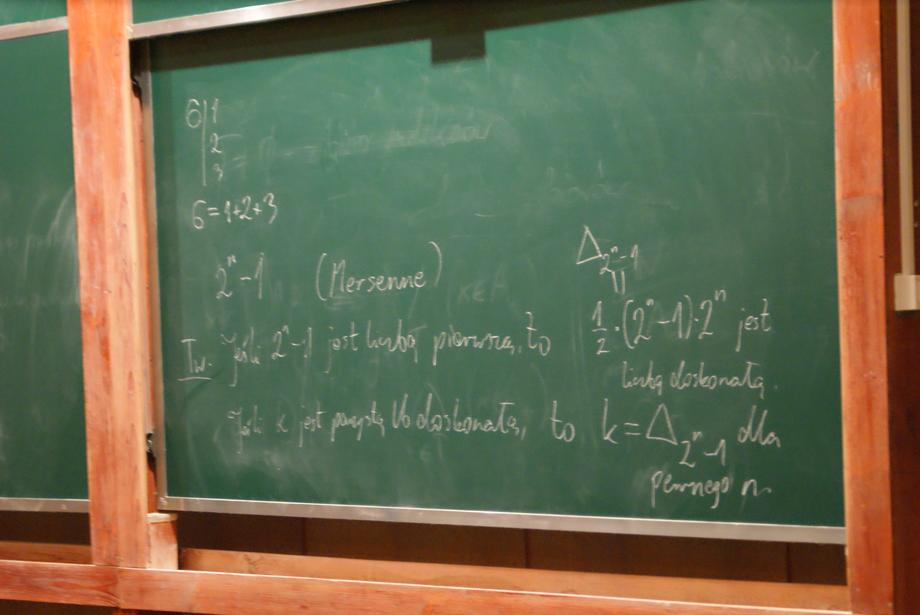 6|1
2
3
6=1+2+3
2ⁿ-1 (Mersenne)
Δ_{2ⁿ-1}
||
Tw. Jeśli 2ⁿ-1 jest liczbą pierwszą, to ½·(2ⁿ-1)·2ⁿ jest
liczbą doskonałą.
Jeśli k jest parzystą lb doskonałą, to k=Δ_{2ⁿ-1} dla
pewnego n